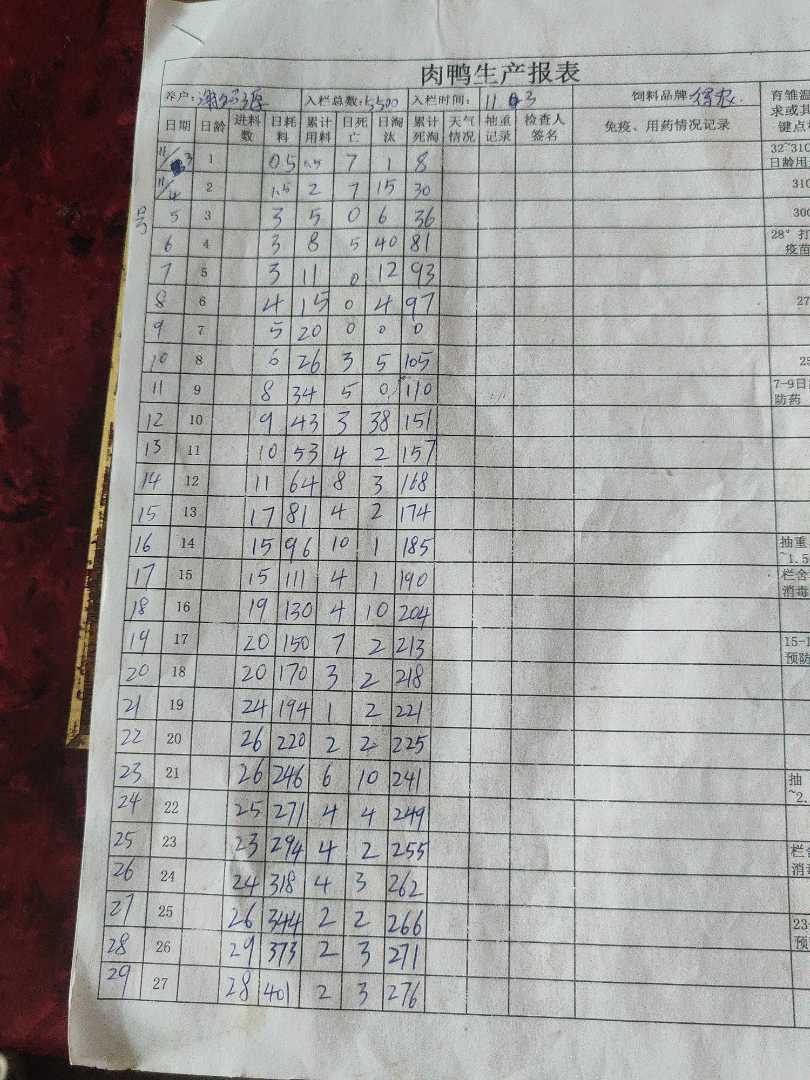 肉鸭生产报表
养户: 入栏总数:5500 入栏时间: 11 3 饲料品牌: 育雏温
求或其
键点
日期 日龄 进料数 日耗料 累计用料 日死亡 日淘汰 累计死淘 天气情况 抽重记录 检查人签名 免疫、用药情况记录
11/3 1 0.5 0.5 7 1 8 32~310 日龄用
11/4 2 1.5 2 7 15 30 310
5 3 3 5 0 6 36 300
6 4 3 8 5 40 81 28° 打 疫苗
7 5 3 11 0 12 93
8 6 4 15 0 4 97 27
9 7 5 20 0 0 0
10 8 6 26 3 5 105 25
11 9 8 34 5 0 110 7-9日 防药
12 10 9 43 3 38 151
13 11 10 53 4 2 157
14 12 11 64 8 3 168
15 13 17 81 4 2 174
16 14 15 96 10 1 185 抽重 ~1.5
17 15 15 111 4 1 190 栏舍 消毒
18 16 19 130 4 10 204
19 17 20 150 7 2 213 15-1 预防
20 18 20 170 3 2 218
21 19 24 194 1 2 221
22 20 26 220 2 2 225
23 21 26 246 6 10 241 抽 ~2.
24 22 25 271 4 4 249
25 23 23 294 4 2 255 栏舍 消毒
26 24 24 318 4 3 262
27 25 26 344 2 2 266 23- 预
28 26 29 373 2 3 271
29 27 28 401 2 3 276